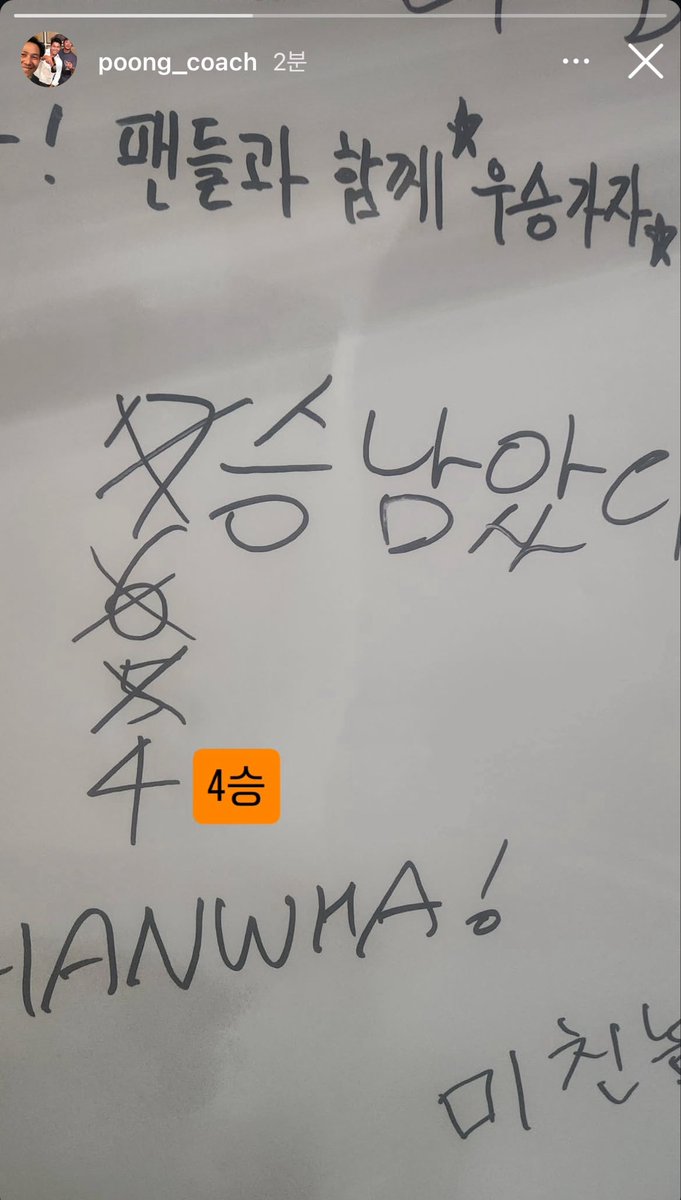 poong_coach 2분
! 팬들과 함께 우승가자
7승 남았
6
5
4 4승
HANWHA!
미친